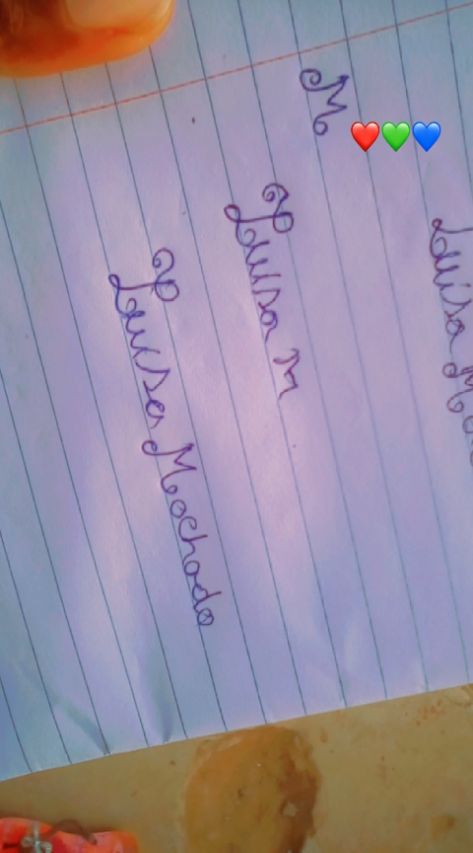 Luisa
M
Luisa M
Luisa Machado